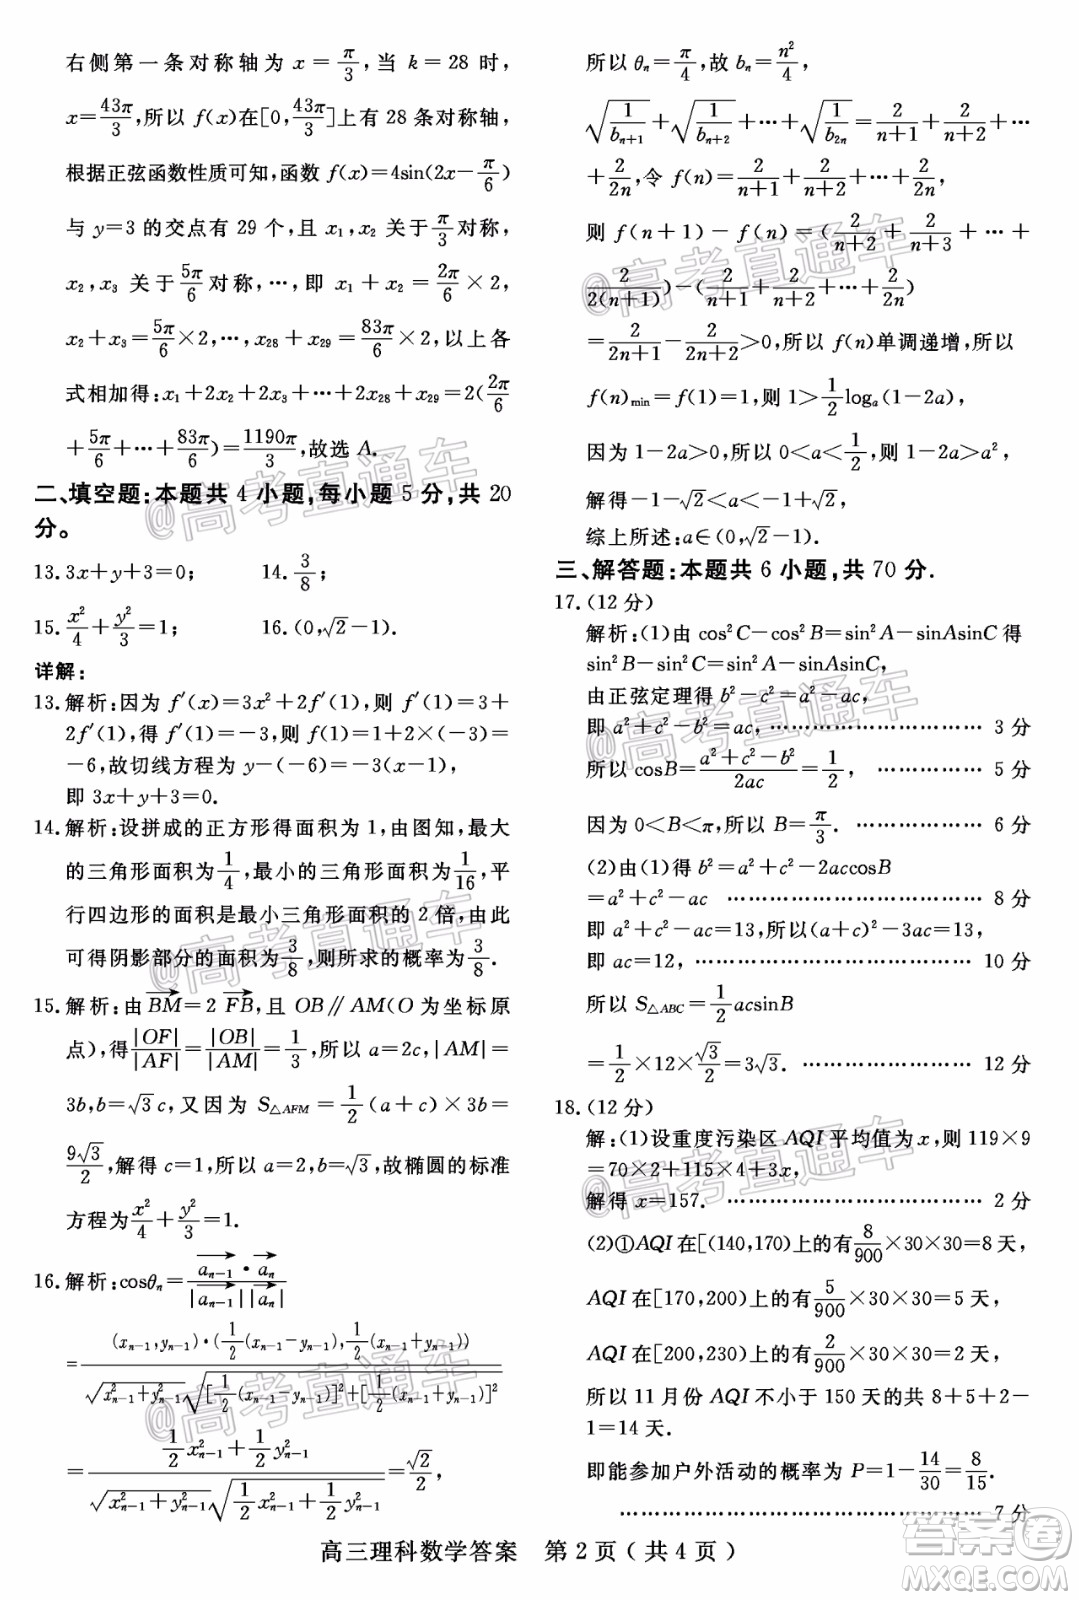 右侧第一条对称轴为 x = π/3, 当 k = 28 时,
x=43π/3,所以 f(x)在[0,43π/3]上有 28 条对称轴,
根据正弦函数性质可知,函数 f(x)=4sin(2x−π/6)
与 y=3 的交点有 29 个,且 x₁,x₂ 关于π/3对称,
x₂,x₃ 关于5π/6对称,…,即 x₁+x₂=2π/6×2,
x₂+x₃=5π/6×2,…,x₂₈+x₂₉=83π/6×2,以上各
式相加得:x₁+2x₂+2x₃+…+2x₂₈+x₂₉=2(2π/6
+5π/6+…+83π/6)=1190π/3,故选 A.
二、填空题:本题共 4 小题,每小题 5 分,共 20
分。
13.3x+y+3=0; 14.3/8;
15.x²/4+y²/3=1; 16.(0,√2−1).
详解:
13.解析:因为 f′(x)=3x²+2f′(1),则 f′(1)=3+
2f′(1),得 f′(1)=−3,则 f(1)=1+2×(−3)−1=
−6,故切线方程为 y−(−6)=−3(x−1),
即 3x+y+3=0.
14.解析:设拼成的正方形得面积为 1,由图知,最大
的三角形面积为1/4,最小的三角形面积为1/16,平
行四边形的面积是最小三角形面积的 2 倍,由此
可得阴影部分的面积为3/8,则所求的概率为3/8.
15.解析:由 BM→=2 FB→,且 OB∥AM(O 为坐标原
点),得|OF|/|AF|=|OB|/|AM|=1/3,所以 a=2c,|AM|=
3b,b=√3c,又因为 S△AFM=1/2(a+c)×3b=
9√3/2,解得 c=1,所以 a=2,b=√3,故椭圆的标准
方程为x²/4+y²/3=1.
16.解析:cosθₙ=(aₙ₋₁→·aₙ→)/(|aₙ₋₁→||aₙ→|)
=(xₙ₋₁,yₙ₋₁)·(1/2(xₙ₋₁−yₙ₋₁),1/2(xₙ₋₁+yₙ₋₁))/(√(x²ₙ₋₁+y²ₙ₋₁)√([1/2(xₙ₋₁−yₙ₋₁)]²+[1/2(xₙ₋₁+yₙ₋₁)]²))
=(1/2x²ₙ₋₁+1/2y²ₙ₋₁)/(√(x²ₙ₋₁+y²ₙ₋₁)√(1/2x²ₙ₋₁+1/2y²ₙ₋₁))=√2/2,
所以 θₙ=π/4,故 bₙ=n²/4,
√(1/bₙ₊₁)+√(1/bₙ₊₂)+…+√(1/b₂ₙ)=2/(n+1)+2/(n+2)+…
+2/2n,令 f(n)=2/(n+1)+2/(n+2)+…+2/2n,
则 f(n+1)−f(n)=(2/(n+2)+2/(n+3)+…+
2/2(n+1))−(2/(n+1)+2/(n+2)+…+2/2n)
=2/(2n+1)−2/(2n+2)>0,所以 f(n)单调递增,所以
f(n)min=f(1)=1,则 1>1/2logₐ(1−2a),
因为 1−2a>0,所以 0<a<1/2,则 1−2a>a²,
解得−1−√2<a<−1+√2,
综上所述:a∈(0,√2−1).
三、解答题:本题共 6 小题,共 70 分.
17.(12 分)
解析:(1)由 cos²C−cos²B=sin²A−sinAsinC 得
sin²B−sin²C=sin²A−sinAsinC,
由正弦定理得 b²−c²=a²−ac,
即 a²+c²−b²=ac,………………………… 3 分
所以 cosB=(a²+c²−b²)/2ac=1/2, …………… 5 分
因为 0<B<π,所以 B=π/3. ……………… 6 分
(2)由(1)得 b²=a²+c²−2accosB
=a²+c²−ac ……………………………… 8 分
即 a²+c²−ac=13,所以(a+c)²−3ac=13,
即 ac=12,………………………………… 10 分
所以 S△ABC=1/2acsinB
=1/2×12×√3/2=3√3. …………………… 12 分
18.(12 分)
解:(1)设重度污染区 AQI 平均值为 x,则 119×9
=70×2+115×4+3x,
解得 x=157. ……………………………… 2 分
(2)①AQI 在[(140,170)上的有8/900×30×30=8 天,
AQI 在[170,200)上的有5/900×30×30=5 天,
AQI 在[200,230)上的有2/900×30×30=2 天,
所以 11 月份 AQI 不小于 150 天的共 8+5+2−
1=14 天.
即能参加户外活动的概率为 P=1−14/30=8/15.
…………………………………………… 7 分
高三理科数学答案 第 2 页 ( 共 4 页 )
@高考直通车
@高考直通车
@高考直通车
@高考直通车
@高考直通车
@高考直通车
@高考直通车
@高考直通车
答案圈
MXQE.COM